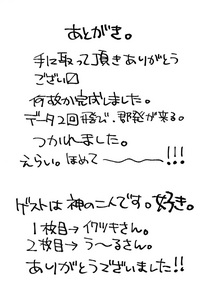 あとがき。
手に取って頂きありがとう
ござい〼
何故か完成しました。
データ2回飛び、即発が来る。
つかれました。
えらい。ほめて〜〜〜!!!
ゲストは神の二人です。好き。
1枚目→イワツキさん。
2枚目→う〜るさん。
ありがとうございました!!